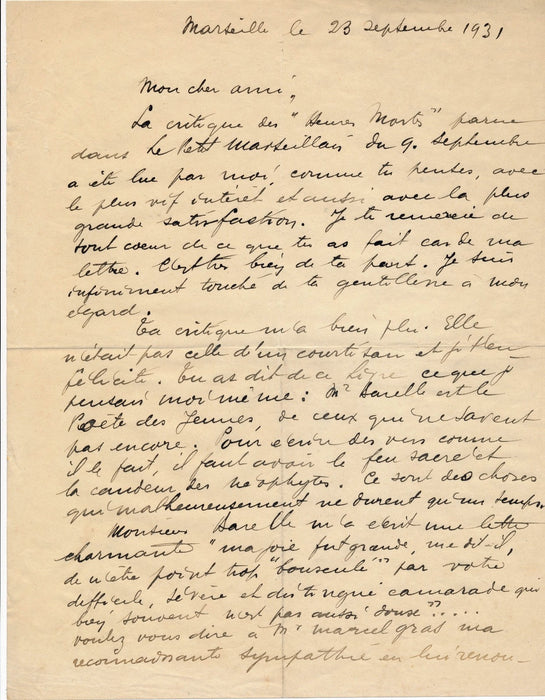 Marseille le 23 septembre 1931
Mon cher ami,
La critique des "Heures Mortes" parue
dans Le Petit Marseillais du 9. septembre
a été lue par moi, comme tu penses, avec
le plus vif intérêt et aussi avec la plus
grande satisfaction. Je te remercie de
tout coeur de ce que tu as fait cas de ma
lettre. C'est très bien de ta part. Je suis
infiniment touché de ta gentillesse à mon
égard.
Ta critique m'a bien plu. Elle
n'était pas celle d'un courtisan et je t'en
félicite. Tu as dit de ce livre ce que je
pensais moi même : Mr Barelle est le
Poète des Jeunes, de ceux qui ne savent
pas encore. Pour écrire des vers comme
il le fait, il faut avoir le feu sacré et
la candeur des néophytes. Ce sont des choses
qui malheureusement ne durent qu'un temps.
Monsieur Barelle m'a écrit une lettre
charmante "ma joie fut grande, me dit-il,
de n'être point trop "bousculé" par votre
difficile, sévère et distingué camarade qui
bien souvent n'est pas aussi doux".....
voulez vous dire à Mr marcel gras ma
reconnaissante sympathie en lui renou-